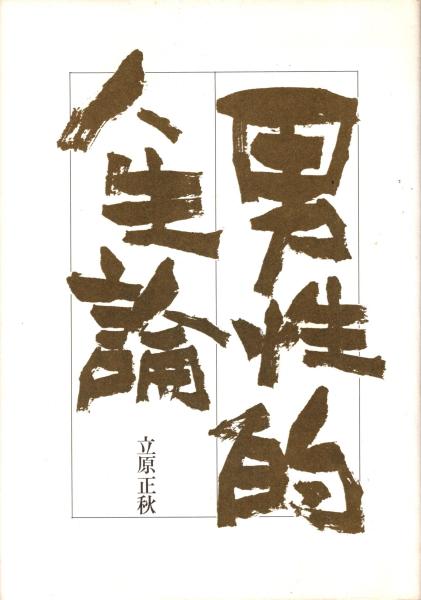 男性的
人生論
立原正秋